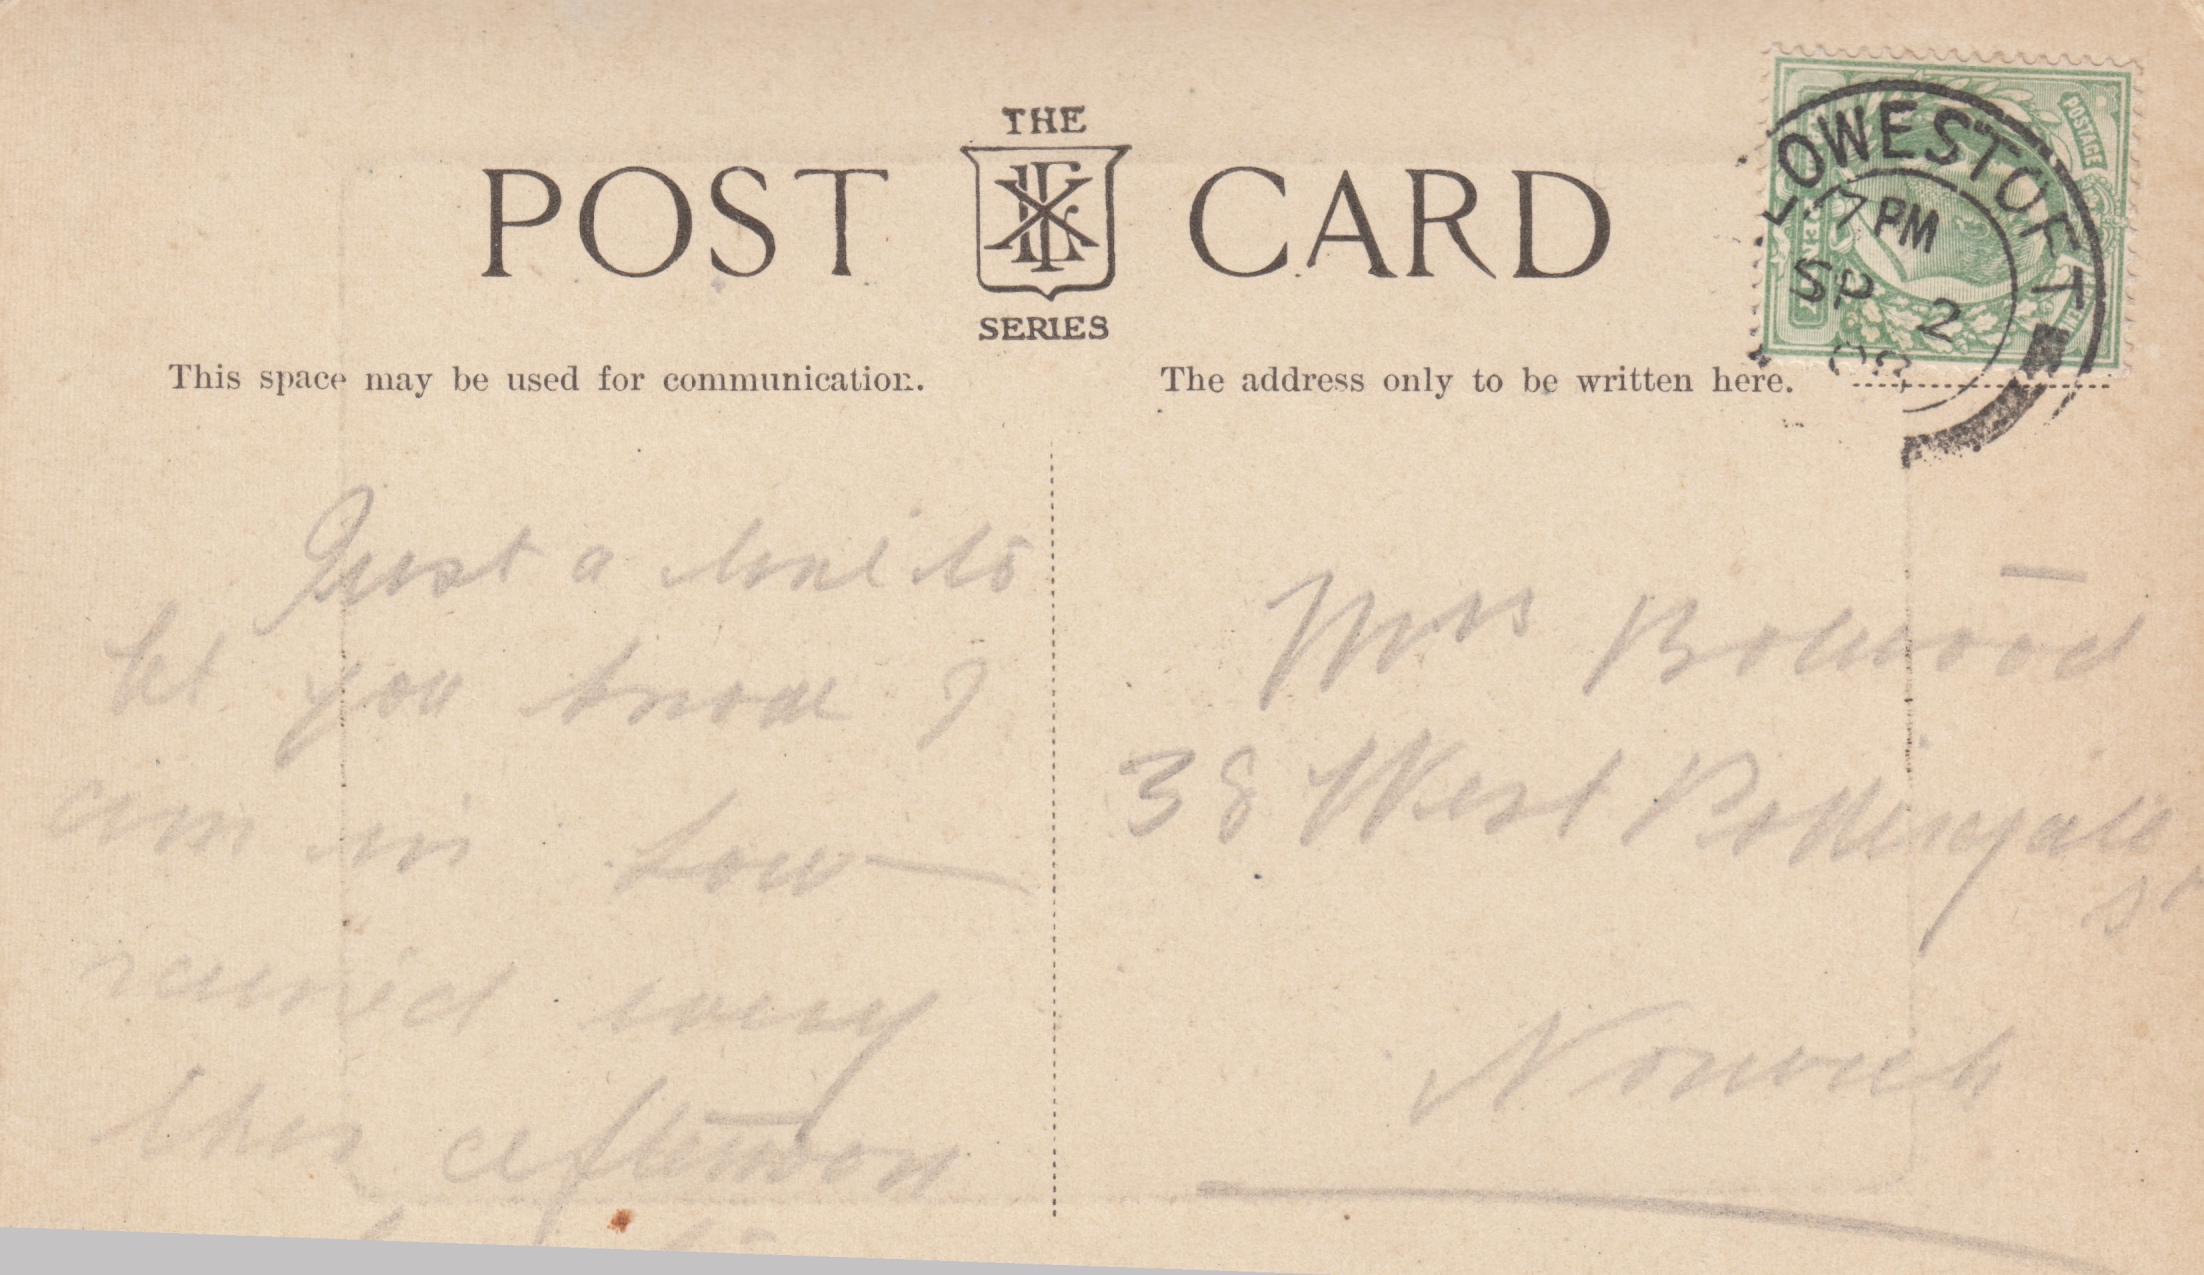 THE
POST CARD
SERIES
POSTAGE
LOWESTOFT
7 PM
SP 2
This space may be used for communication.
The address only to be written here.
Just a line to
let you know I
am in Low
received
this afternoon
Mrs Bolwood
38 West Pottergate
St
Norwich